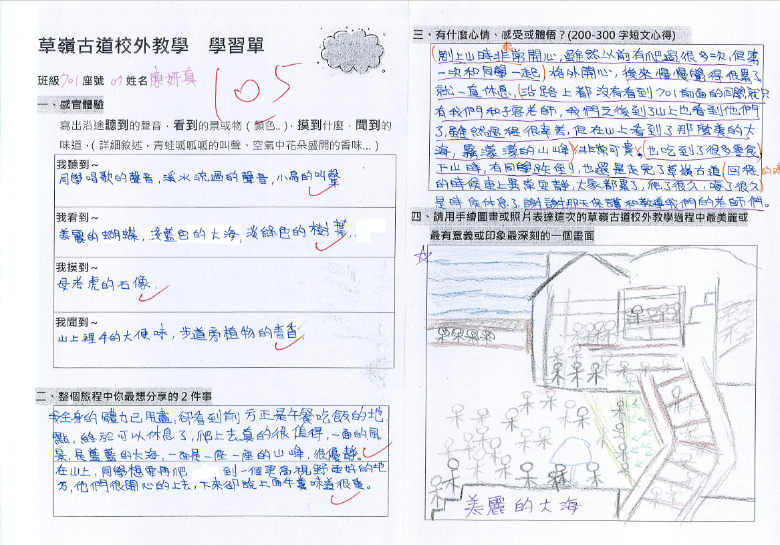 草嶺古道校外教學 學習單
班級 701 座號 07 姓名
105
一、感官體驗
寫出沿途聽到的聲音，看到的景或物（顏色..），摸到什麼，聞到的
味道，（詳細敘述，青蛙呱呱呱的叫聲、空氣中花朵盛開的香味...）
我聽到~
同學唱歌的聲音，溪水流過的聲音，小鳥的叫聲
我看到~
美麗的蝴蝶，深藍色的大海，淡綠色的樹葉，
我摸到~
母老虎的石像.
我聞到~
山上裡牛的大便味，步道旁植物的清香.
二、整個旅程中你最想分享的 2 件事
我全身的體力已用盡，卻看到前方正是午餐吃飯的地
點，終於可以休息了，爬上去真的很值得，一面的風
景是藍藍的大海，一面是一座一座的山峰，很優靜。
在山上，同學想要再爬 到一個更高視野更好的地
方，他們很開心的上去，下來卻說上面牛糞味道很重。
三、有什麼心情、感受或體悟？(200-300 字短文心得)
剛上山時非常開心，雖然以前有爬過很多次，但第
一次和同學一起，格外開心，後來慢慢覺得很累了
就一直休息，沿路上都沒有看到701前面的同學就只
有我們和子容老師，我們之後到了山上也看到他們
了，雖然過程很辛苦，但在山上看到了那麼美的大
海，霧濛濛的山峰，非常可貴。也吃到了很多零食，
下山時，有同學跌倒，也還是走完了草嶺古道，回程
的時候車上異常安靜，大家都累了，爬了很久，喊了很久，
是時候休息了，謝謝那天保護和教導我們的老師們。
四、請用手繪圖畫或照片表達這次的草嶺古道校外教學過程中最美麗或
最有意義或印象最深刻的一個畫面
美麗的大海